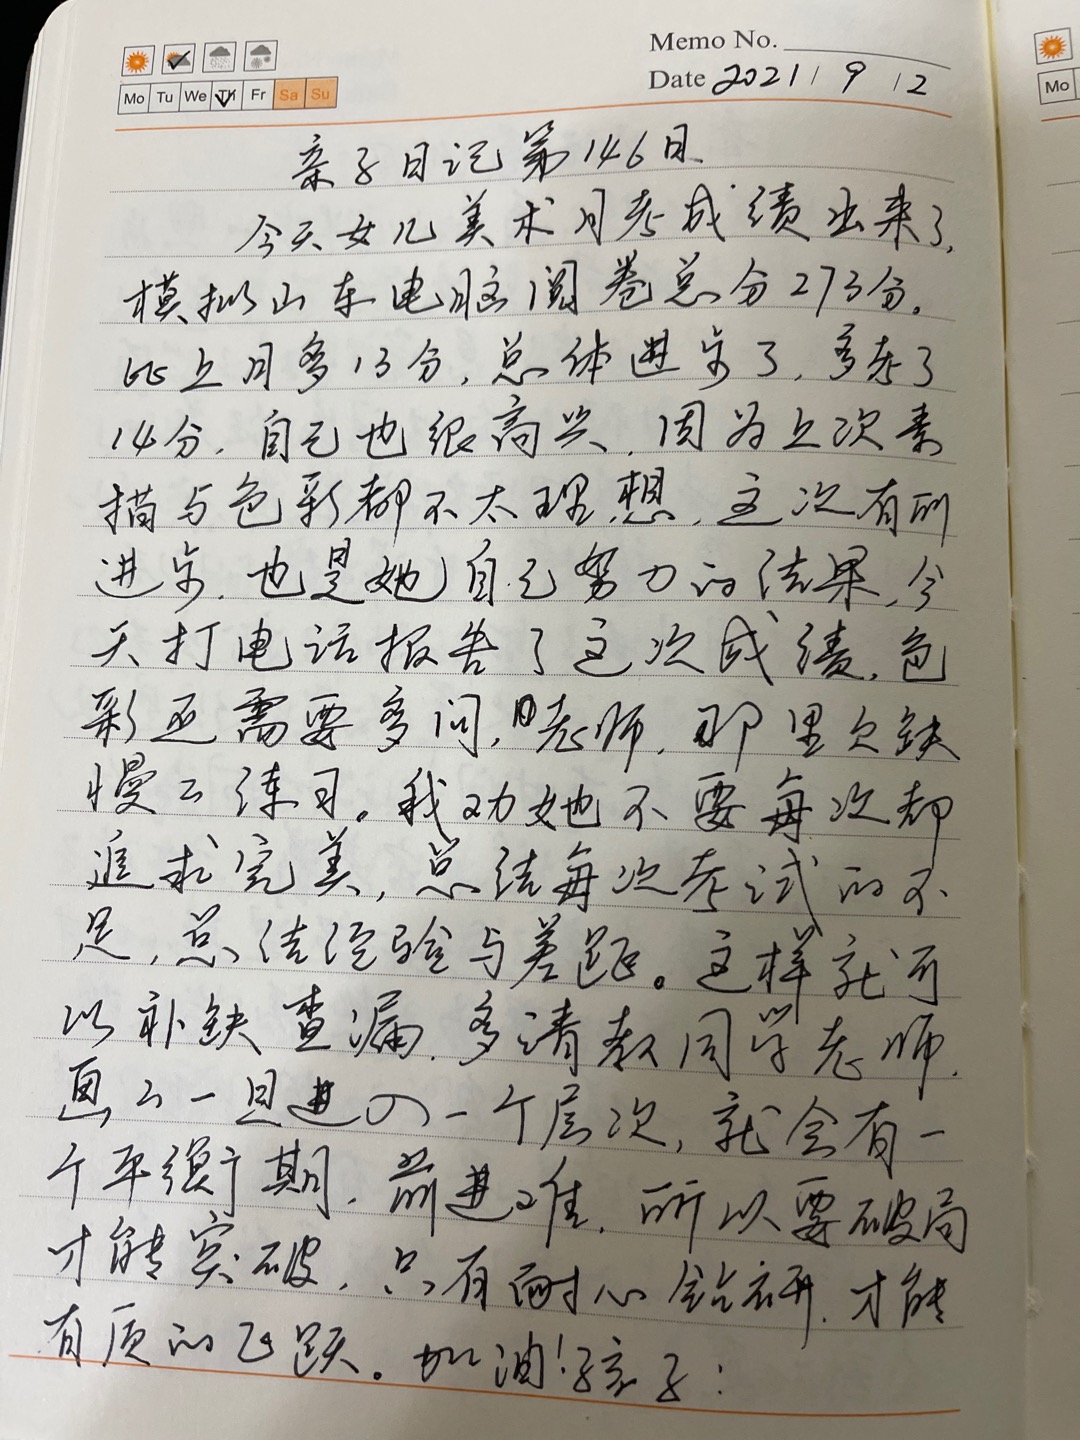 Memo No.
Mo Tu We Th Fr Sa Su
Date 2021 / 9 / 2
亲子日记第146日
今天女儿美术月考成绩出来了,
模拟山东电脑阅卷总分273分。
比上月多13分,总体进步了,多考了
14分,自己也很高兴,因为上次素
描与色彩都不太理想,这次有所
进步,也是她自己努力的结果,今
天打电话报告了这次成绩,色
彩还需要多问,老师,那里欠缺
慢二练习。我劝她不要每次都
追求完美,总结每次考试的不
足,总结经验与差距。这样就可
以补缺查漏,多请教同学老师,
画二一旦进入一个层次,就会有一
个平衡期,前进难,所以要破局
才能突破,只有耐心钻研,才能
有质的飞跃。加油!孩子:
Mo